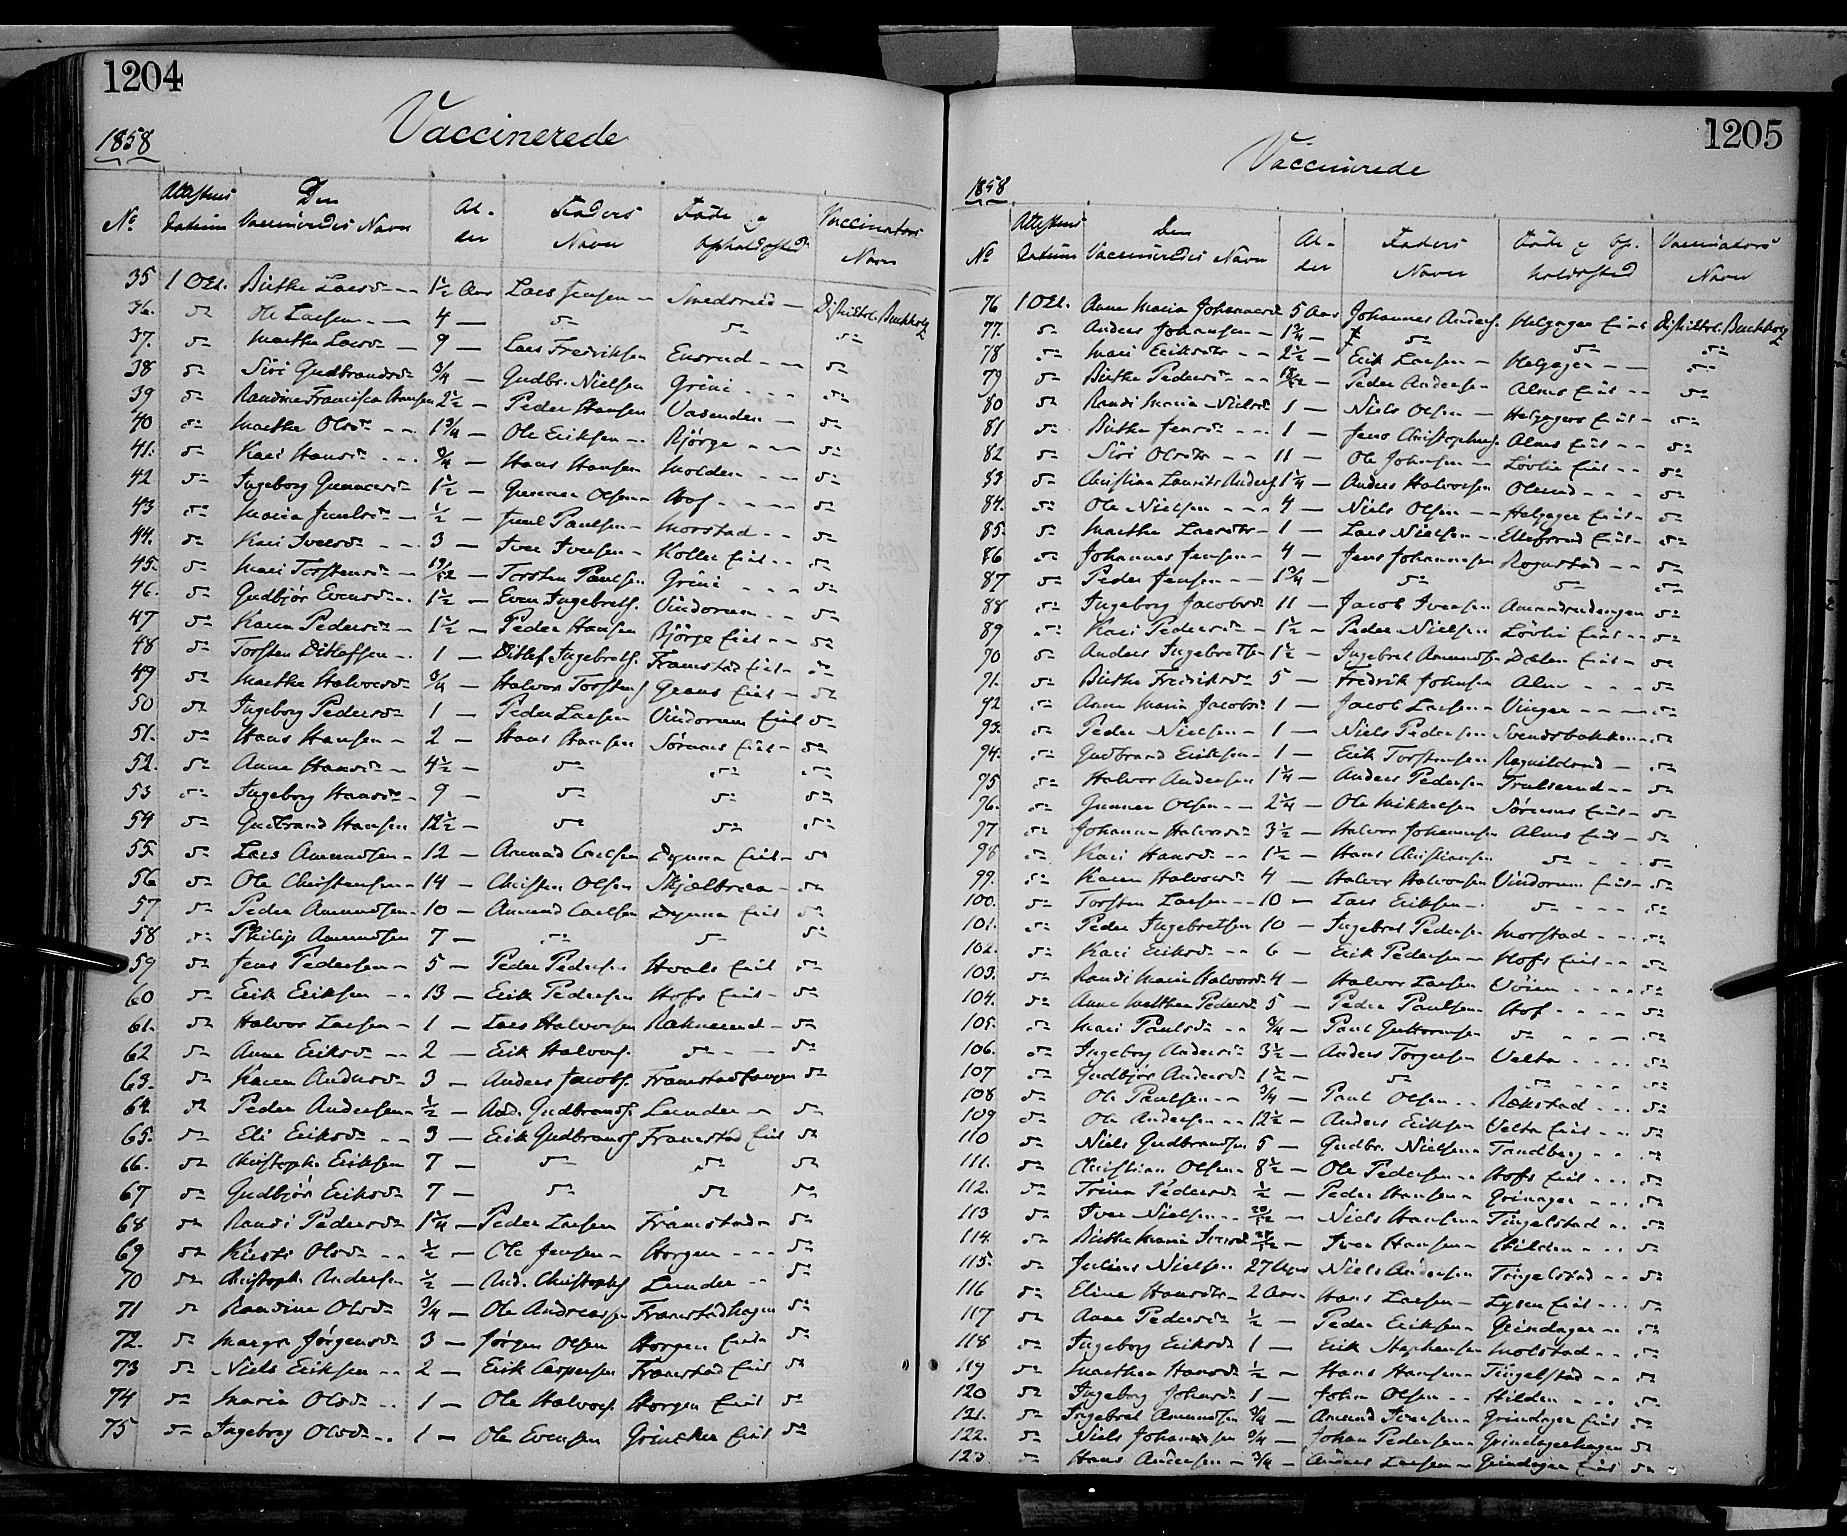 1204
Vaccinerede
1858
No Attestens Datum Den Vaccineredes Navn Alder Faders Navn Føde & Opholdssted Vaccinators Navn
35 1 Oct. Birthe Larsdr 1½ Aar Lars Jensen Smedsrud Distriktsl. Buchholz
36. do Ole Larsen 4 do do
37. do Marthe Larsdr 9 Lars Fredriksen Ensrud do
38 do Siri Gudbrandsdr ¾ Gudbr. Nielsen Grini do
39 do Randine Francisca Hansen 2½ Peder Hansen Vasenden do
40 do Marthe Olsdr 1¾ Ole Eriksen Bjørge do
41. do Kari Hansdr ¾ Hans Hansen Molden do
42 do Ingeborg Gunnersdr 1½ Gunner Olsen Hof do
43 do Maria Juulsdr ½ Juul Paulsen Morstad do
44. do Kari Iversdr 3 Iver Iversen Koller Eiet do
45. do Mari Torstensdr 19/52 Torsten Paulsen Grini do
46. do Gudbjør Evensdr 1½ Even Ingebrets. Vindorum do
47 do Karen Pedersdr 1½ Peder Hansen Bjørge Eiet do
48 do Torsten Ditlefsen 1 Ditlef Ingebrets. Framstad Eiet do
49 do Marthe Halvorsdr ¾ Halvor Torstens Grans Eiet do
50 do Ingeborg Pedersdr 1 Peder Larsen Vindorum Eiet do
51. do Hans Hansen 2 Hans Hansen Sørums Eiet do
52. do Anne Hansdr 4½ do do do
53 do Ingeborg Hansdr 9 do do do
54 do Gudbrand Hansen 12½ do do do
55. do Lars Amundsen 12 Amund Carlsen Dynna Eiet do
56 do Ole Christensen 14 Christen Olsen Skjælbreia do
57 do Peder Amundsen 10 Amund Carlsen Dynna Eiet do
58 do Philip Amundsen 7 do do do
59 do Jens Pedersen 5 Peder Pedersen Hvals Eiet do
60 do Erik Eriksen 13 Erik Pedersen Hofs Eiet do
61. do Halvor Larsen 1 Lars Halvorsen Raknerud do
62 do Anne Eriksdr 2 Erik Halvors. do do
63. do Karen Andersdr 3 Anders Jacobs. Framstadhaugen do
64 do Peder Andersen ½ And. Gudbrands. Lunder do
65. do Eli Eriksdr 3 Erik Gudbrands Framstad Eiet do
66. do Christoph. Eriksen 7 do do do
67 do Gudbjør Eriksdr 7 do do do
68 do Randi Pedersdr 1¼ Peder Larsen Framstad do
69 do Kirsti Olsdr ½ Ole Jensen Horgen do
70 do Christoph. Andersen ½ And. Christophs Lunder do
71 do Randine Olsdr ¾ Ole Andreassen Framstadhagen do
72. do Margr. Jørgensdr 3 Jørgen Olsen Horgen Eiet do
73 do Niels Eriksen 2 Erik Caspersen Framstad Eiet do
74 do Maria Olsdr 1 Ole Halvors. Horgen Eiet do
75 do Ingeborg Olsdr 1 Ole Evensen Grinaker Eiet do
1205
Vaccinerede
1858
No Attestens Datum Den Vaccineredes Navn Alder Faders Navn Føde & Opholdssted Vaccinators Navn
76 1 Oct. Anne Maria Johannesdr 5 Aar Johannes Anders. Helgager Eiet Distriktsl. Buchholz
77. do Anders Johansen 1¾ do do do
78 do Mari Eriksdr 2½ Erik Larsen Helgager
79 do Birthe Pedersdr Peder Andersen Alms Eiet do
80 do Randi Maria Nielsdr 1 Niels Olsen Helgagers Eiet do
81 do Birthe Jensdr 1 Jens Christophers. Alms Eiet do
82 do Siri Olsdr 11 Ole Johnsen Løvlie Eiet do
83 do Christian Laurits Anders. 1¼ Anders Halvorsen Olerud do
84. do Ole Nielsen 4 Niels Olsen Helgager Eiet do
85. do Marthe Larsdr 1 Lars Nielsen Ellefsrud Eiet do
86 do Johannes Jensen 4 Jens Johannesen Rognstad do
87 do Peder Jensen 1¾ do do do
88 do Ingeborg Jacobsdr 11 Jacob Iversen Amundrudengen do
89 do Kari Pedersdr 1½ Peder Nielsen Løvlie Eiet do
70 do Anders Ingebretsen 1½ Ingebret Amundsen Dælen Eiet do
91. do Birthe Fredriksdr 5 Fredrik Johnsen Alm do
92 do Anne Maria Jacobsdr 1 Jacob Larsen Vinger do
93. do Peder Nielsen 1 Niels Pedersen Svendsbakken do
94. do Gudbrand Eriksen 1 Erik Torstensen Ragnildrud do
95 do Halvor Andersen 1¼ Anders Pedersen Trulserud do
96. do Gunner Olsen 2¼ Ole Mikkelsen Sørums Eiet do
97 do Johanne Halvorsdr 3½ Halvor Johannesen Alms Eiet do
98 do Kari Hansdr 1½ Hans Christiansen do do
99. do Karen Halvorsdr 4 Halvor Halvorsen Vindorum Eiet do
100. do Torsten Larsen 10 Lars Eriksen do do
101. do Peder Ingebretsen 10 Ingebret Pedersen Morstad do
102. do Kari Eriksdr 6 Erik Pedersen Hofs Eiet do
103. do Randi Maria Halvorsdr 4 Halvor Larsen Vøien do
104. do Anne Malthea Pedersdr 5 Peder Paulsen Hof do
105. do Mari Paulsdr ¾ Paul Guttormsen do do
106. do Ingeborg Andersdr 3½ Anders Torgersen Velta do
107 do Gudbjør Andersdr 1½ do do do
108 do Ole Paulsen ¾ Paul Olsen Rækstad do
109 do Ole Andersen 12½ Anders Eriksen Velta Eiet do
110 do Niels Gudbrandsen 5 Gudbr. Nielsen Tandberg do
111. do Christian Olsen 8½ Ole Pedersen Hofs Eiet do
112. do Trine Pedersdr ½ Peder Hansen Grinager do
113 do Iver Nielsen 20/52 Niels Hansen Tingelstad do
114. do Birthe Maria Iversdr Iver Hansen Hilden do
115. do Julius Nielsen 27 Uger Niels Andersen Tingelstad do
116 do Elina Hansdr 2 Aar Hans Larsen Lysen Eiet do
117 do Anne Pedersdr ½ Peder Eriksen Grindager do
118 do Ingeborg Eriksdr 1 Erik Stephensen Molstad do
119 do Marthea Hansdr ½ Hans Hansen Tingelstad do
120 do Ingeborg Johnsdr 1 John Olsen Hilden do
121. do Ingebret Amundsen ¾ Amund Iversen Grindager Eiet do
122. do Niels Johannesen ¾ Johan Pedersen Grindagerhagen do
123 do Hans Andersen ¾ Anders Larsen Grindager Eiet do